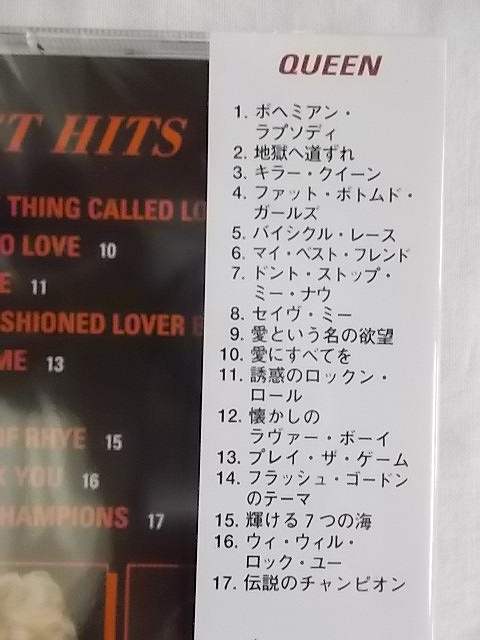 T HITS
THING CALLED LO
O LOVE 10
E 11
SHIONED LOVER B
ME 13
OF RHYE 15
K YOU 16
CHAMPIONS 17
QUEEN
1. ボヘミアン・
ラプソディ
2. 地獄へ道づれ
3. キラー・クイーン
4. ファット・ボトムド・
ガールズ
5. バイシクル・レース
6. マイ・ベスト・フレンド
7. ドント・ストップ・
ミー・ナウ
8. セイヴ・ミー
9. 愛という名の欲望
10. 愛にすべてを
11. 誘惑のロックン・
ロール
12. 懐かしの
ラヴァー・ボーイ
13. プレイ・ザ・ゲーム
14. フラッシュ・ゴードン
のテーマ
15. 輝ける7つの海
16. ウィ・ウィル・
ロック・ユー
17. 伝説のチャンピオン